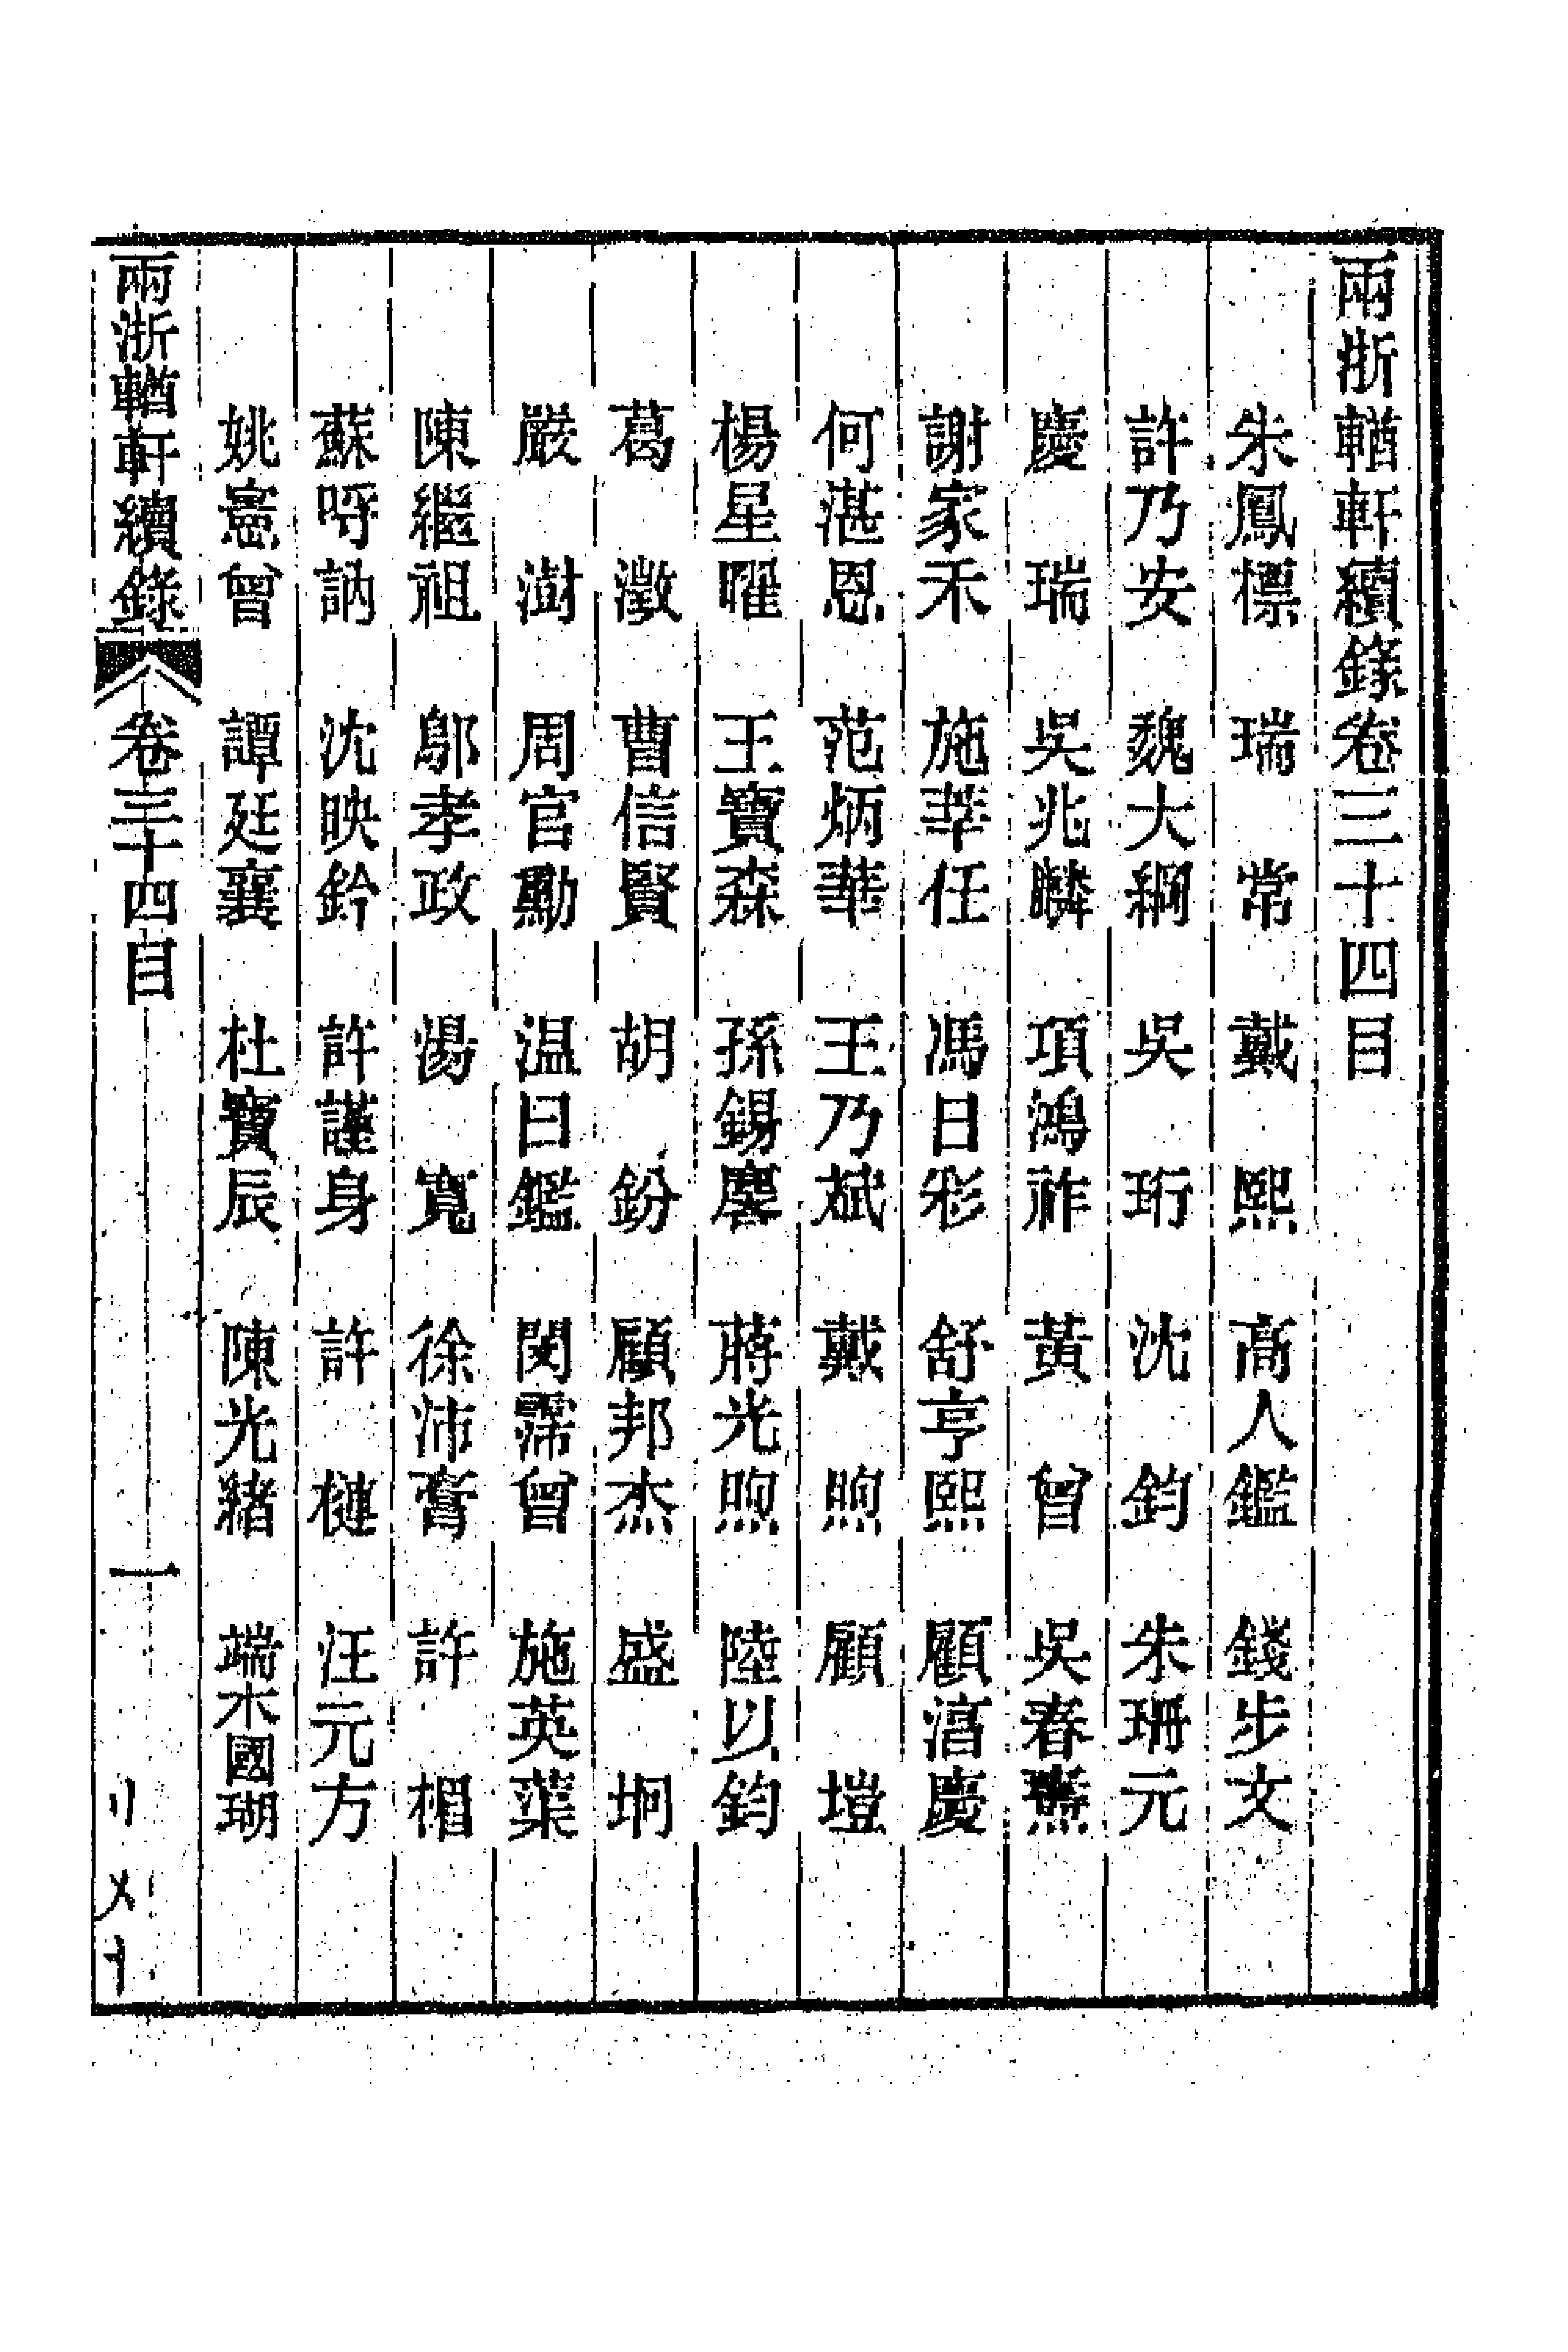 兩浙輶軒續錄卷三十四目
朱鳳標　瑞　常　戴　熙　高人鑑　錢步文
許乃安　魏大綱　吳　珩　沈　鈞　朱珊元
慶　瑞　吳兆麟　項鴻祚　黃　曾　吳春燾
謝家禾　施莘任　馮日彩　舒亨熙　顧淯慶
何湛恩　范炳華　王乃斌　戴　煦　顧　塏
楊星曜　王寶森　孫錫麐　蔣光煦　陸以鈞
葛　澂　曹信賢　胡　鈖　顧邦杰　盛　坰
嚴　澍　周官勳　温日鑑　閔霈曾　施英蕖
陳繼祖　鄔孝政　湯　寬　徐沛齋　許　楣
蘇呼訥　沈映鈐　許謹身　許　槤　汪元方
姚憲曾　譚廷襄　杜寶辰　陳光緒　端木國瑚
兩浙輶軒續錄　卷三十四目　一